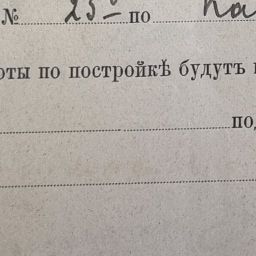 № 25 по
оты по постройкѣ будутъ
по